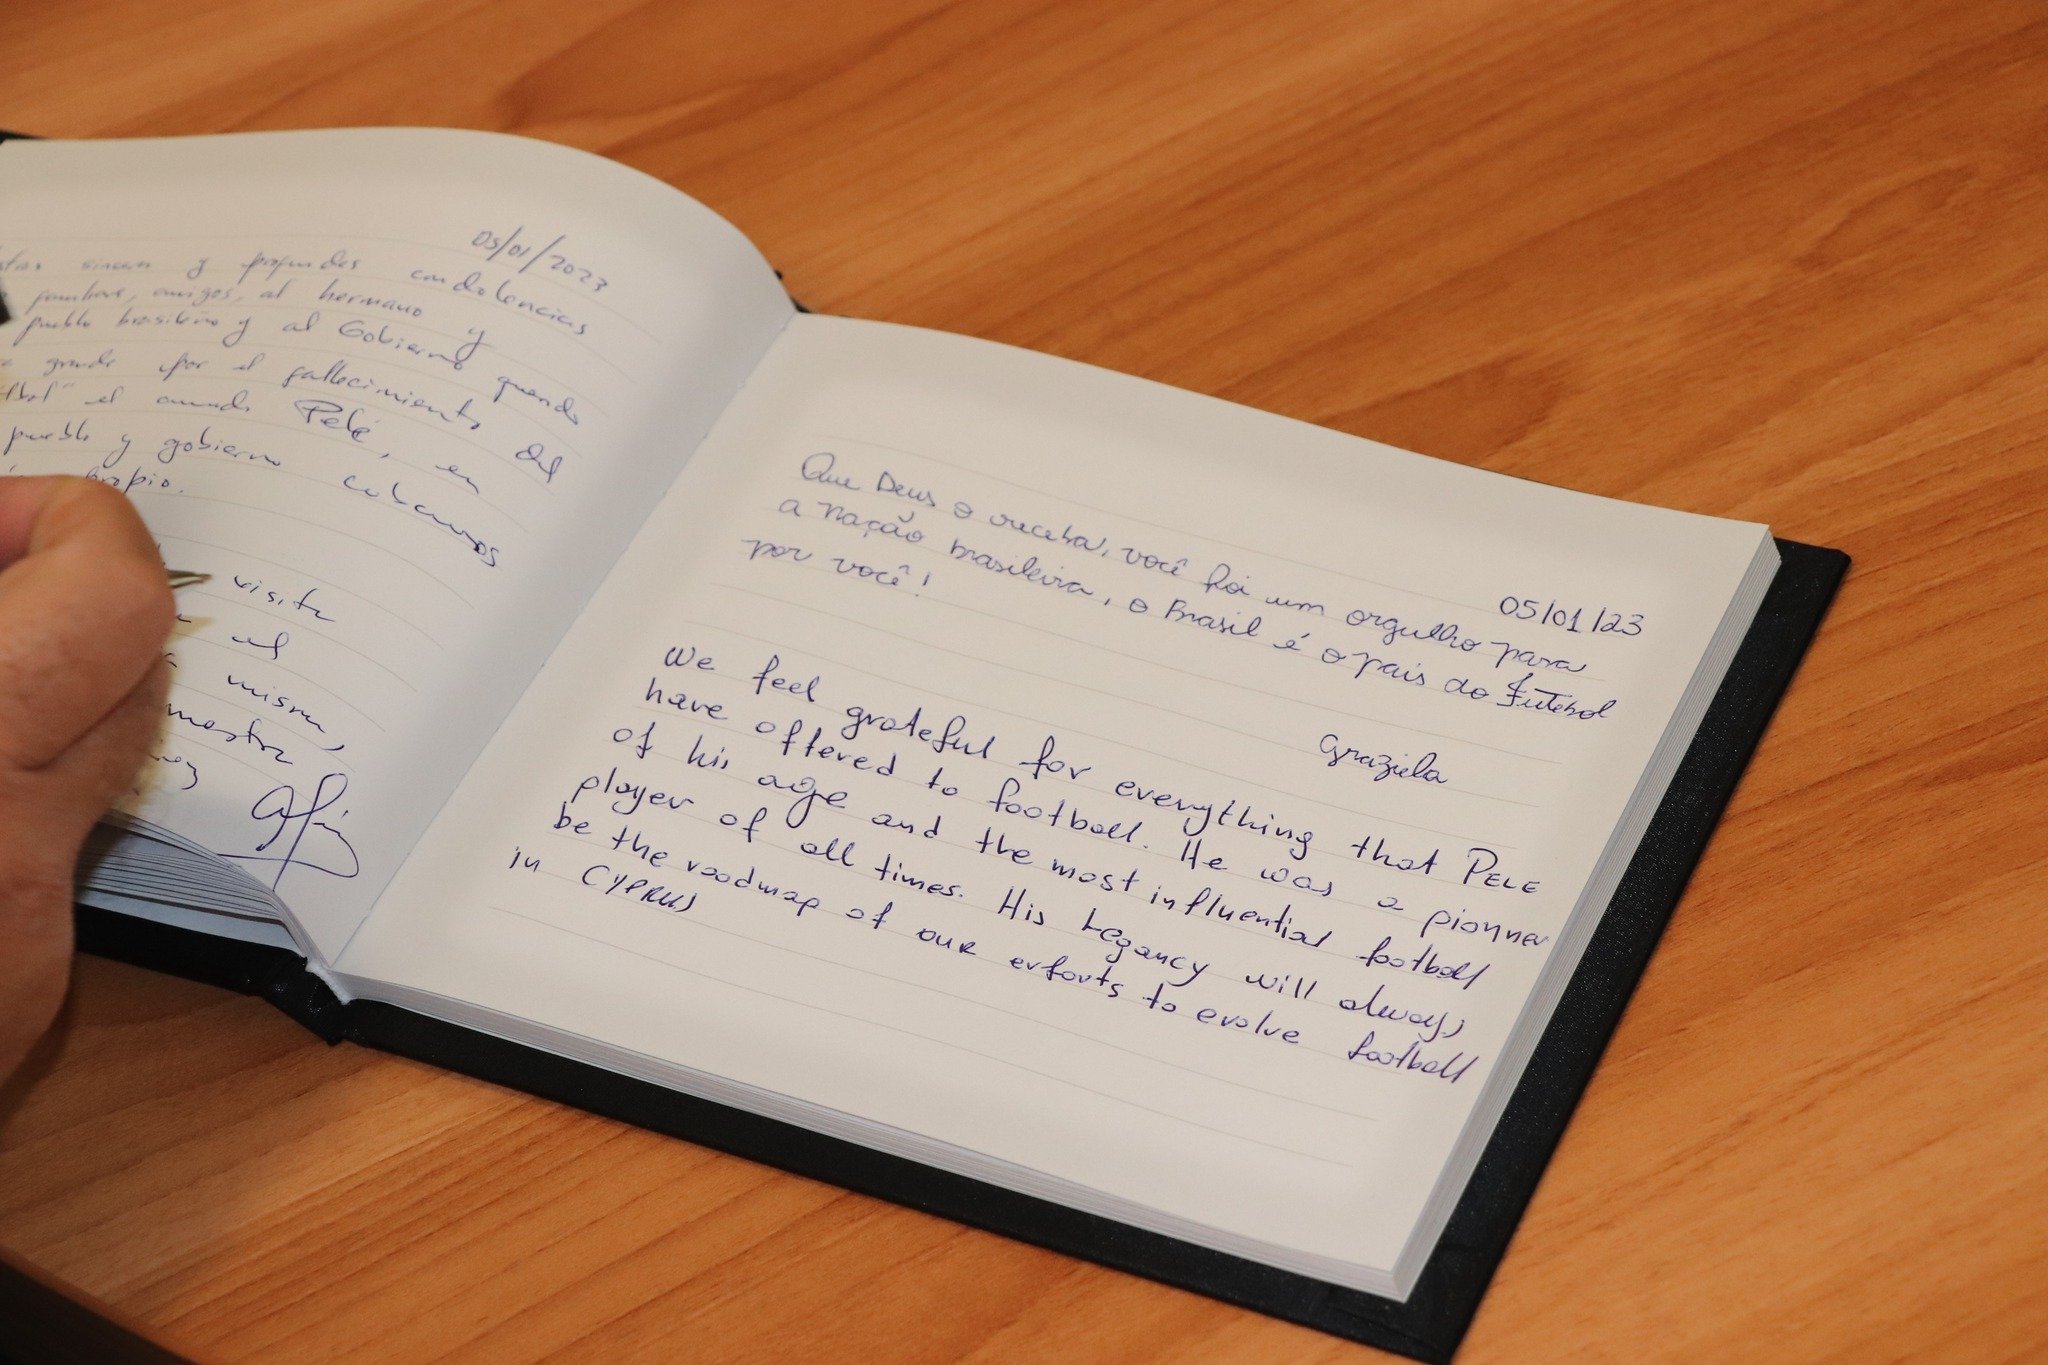 05/01/2023
y profundas condolencias
amigos, al hermano y
pueblo brasileño y al Gobierno
grande por el fallecimiento del
el mundo Pelé, en
pueblo y gobierno cubanos
propio.
visita
el
misma,
05/01/23
Que Deus o receba, você foi um orgulho para
a nação brasileira, o Brasil é o país do futebol
por você!
Graziela
We feel grateful for everything that PELE
have offered to football. He was a pionner
of his age and the most influential football
player of all times. His Legancy will always
be the roadmap of our erforts to evolve football
in CYPRUS